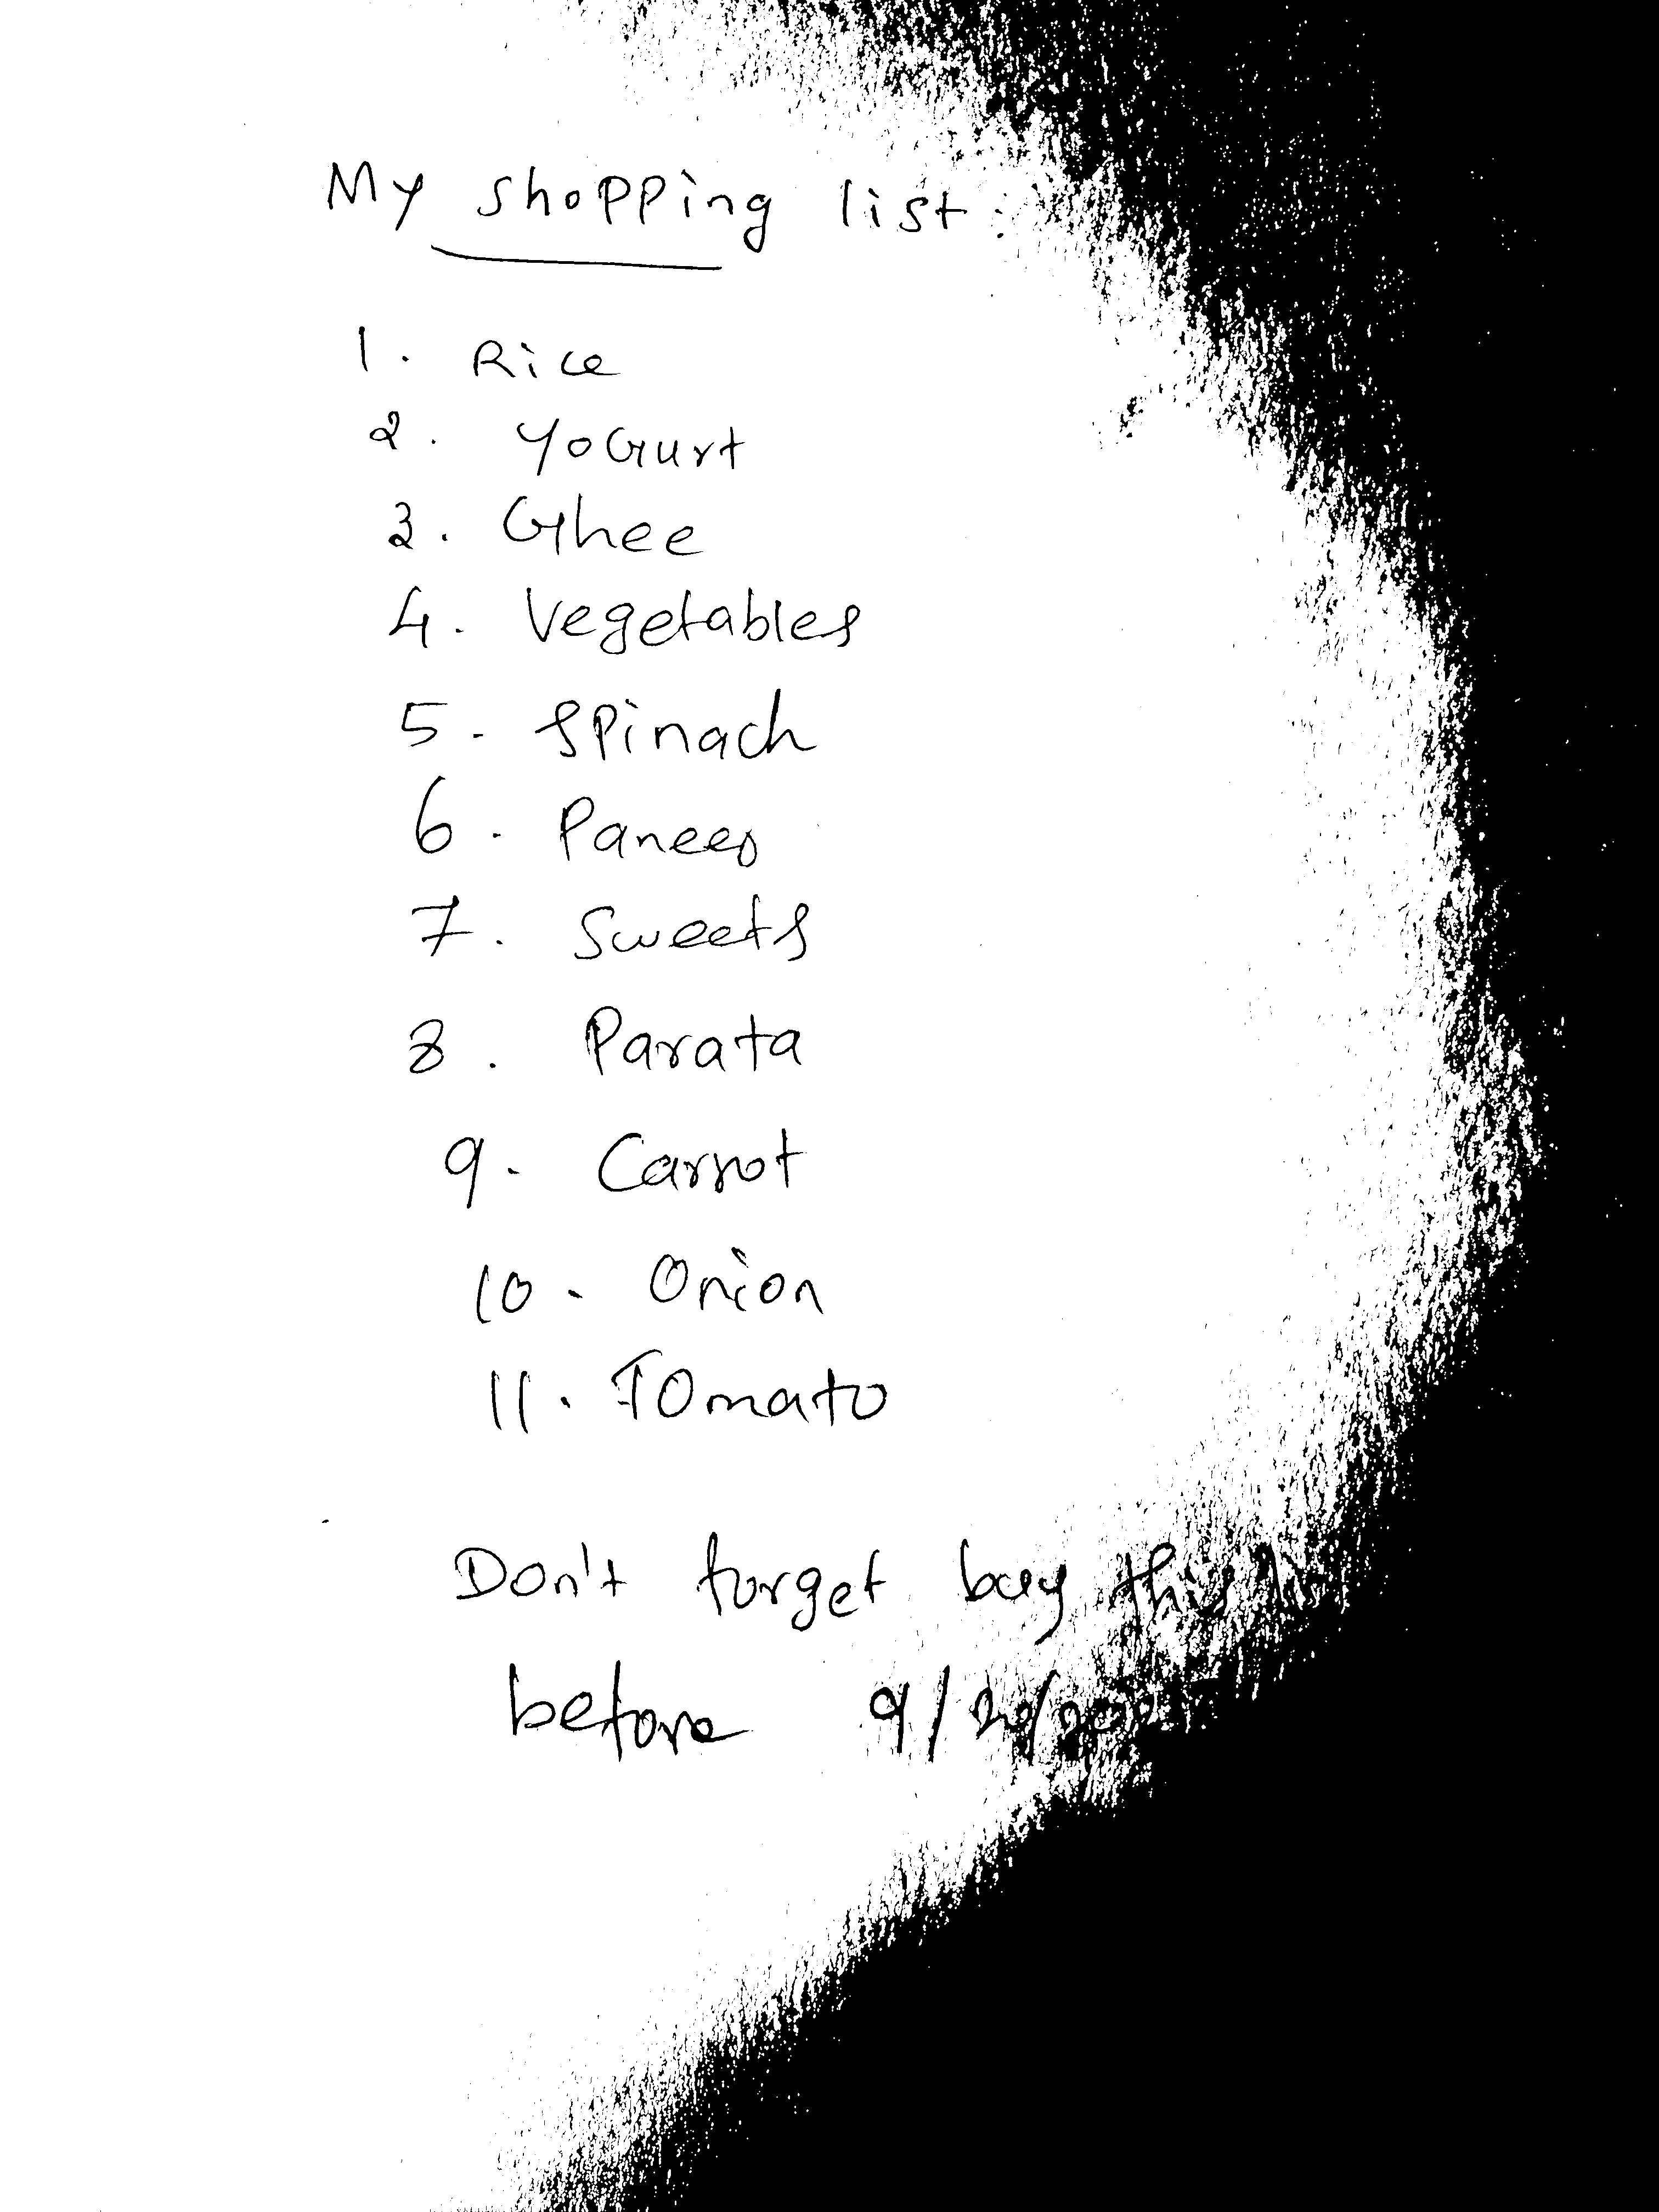 My shopping list:
1. Rice
2. YoGurt
3. Ghee
4. Vegetables
5. Spinach
6. Paneer
7. Sweets
8. Parata
9. Carrot
10. Onion
11. TOmato
Don't forget buy this
before